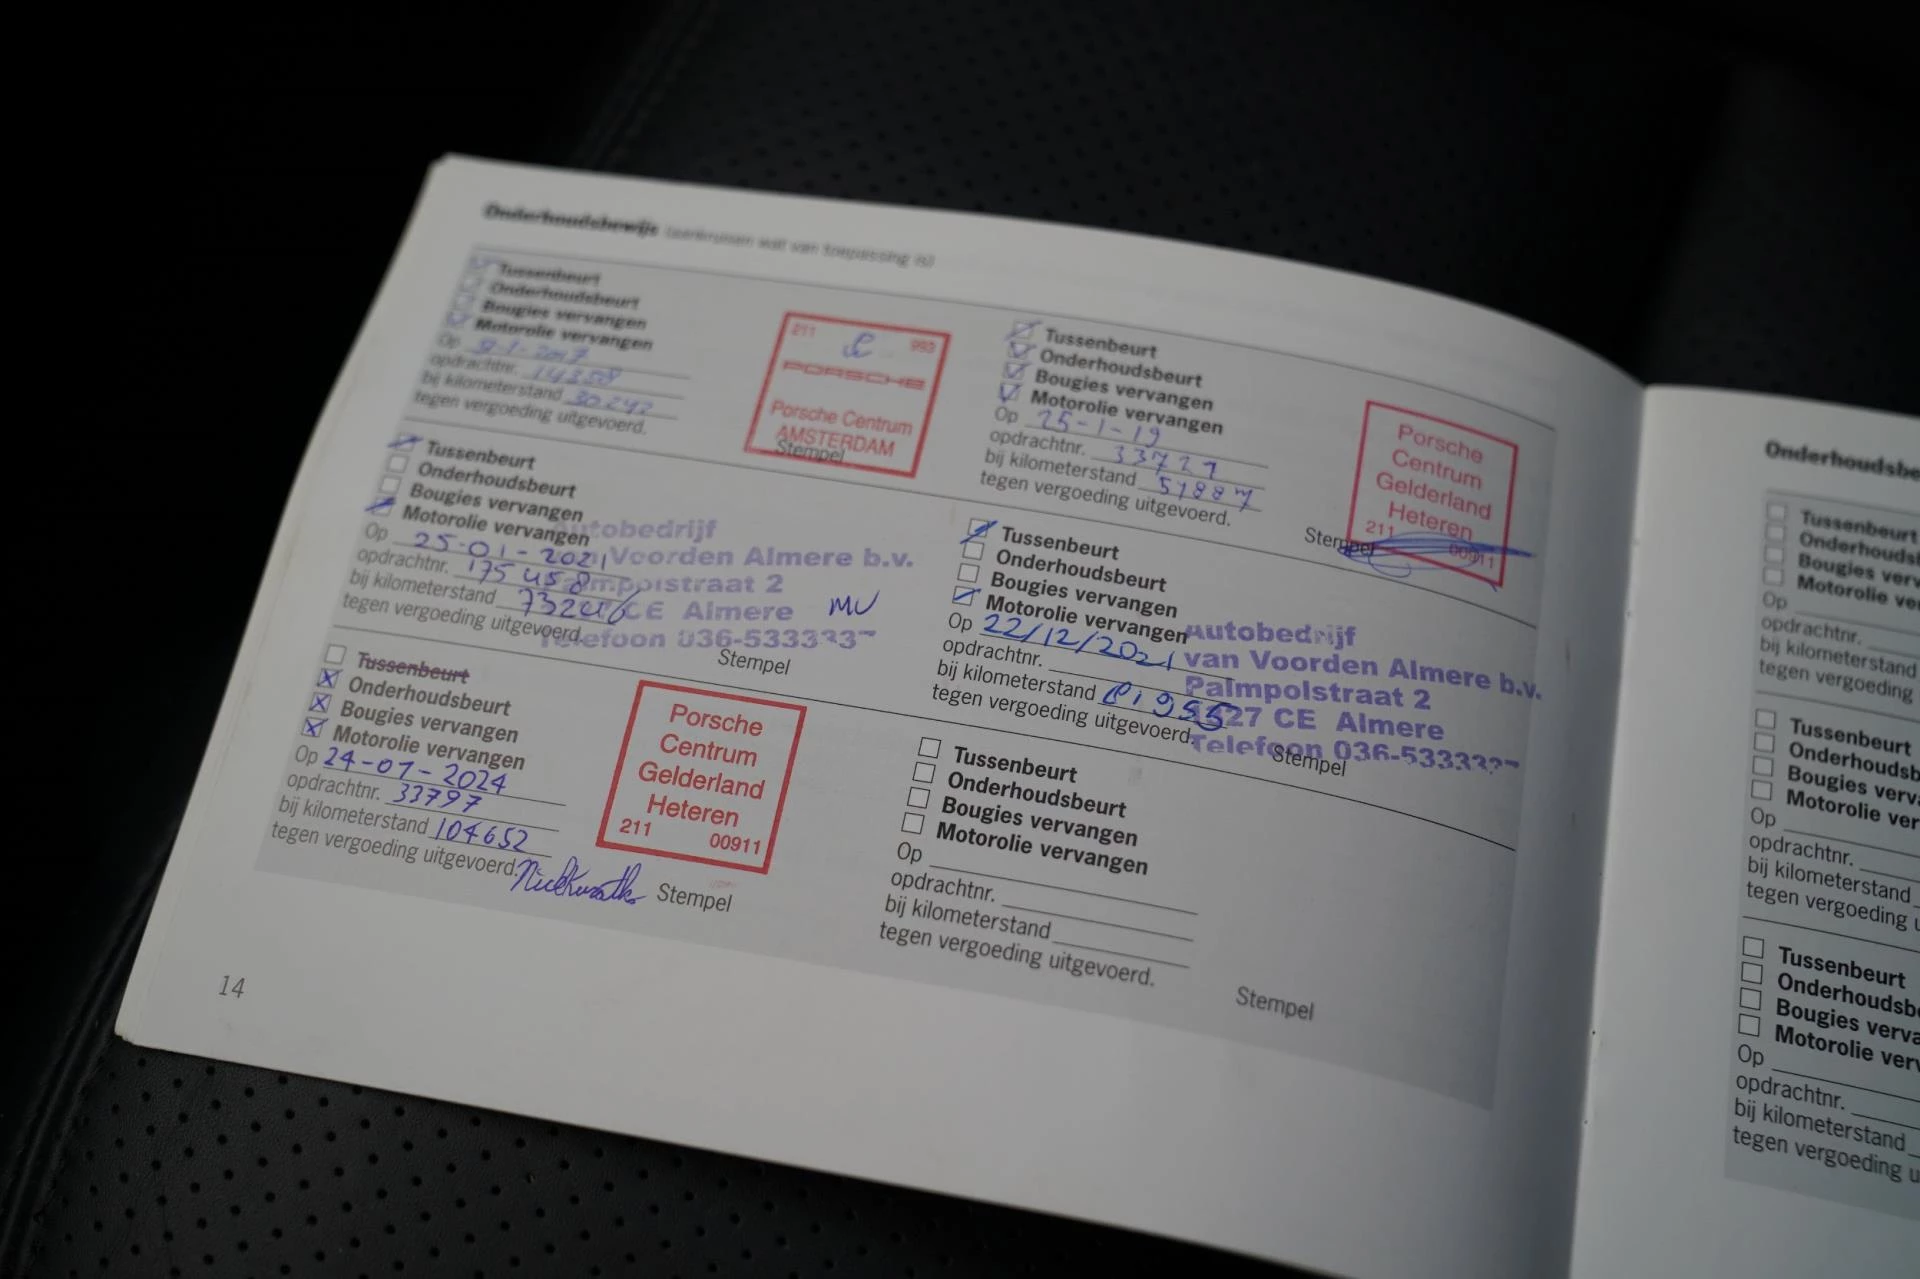 Onderhoudsbewijs (aankruisen wat van toepassing is)
Tussenbeurt
Onderhoudsbeurt
Bougies vervangen
Motorolie vervangen
Op
opdrachtnr. 14358
bij kilometerstand 30242
tegen vergoeding uitgevoerd.
211 993
PORSCHE
Porsche Centrum
AMSTERDAM
Stempel
Tussenbeurt
Onderhoudsbeurt
Bougies vervangen
Motorolie vervangen
Op 25-1-19
opdrachtnr. 33721
bij kilometerstand 51887
tegen vergoeding uitgevoerd.
Porsche
Centrum
Gelderland
Heteren
211 00911
Stempel
Tussenbeurt
Onderhoudsbeurt
Bougies vervangen
Motorolie vervangen
Op 25-01-2021
opdrachtnr. 175458
bij kilometerstand 73246
tegen vergoeding uitgevoerd.
Autobedrijf
van Voorden Almere b.v.
Palmpolstraat 2
CE Almere
Telefoon 036-5333337
MV
Stempel
Tussenbeurt
Onderhoudsbeurt
Bougies vervangen
Motorolie vervangen
Op 22/12/2021
opdrachtnr.
bij kilometerstand 81955
tegen vergoeding uitgevoerd.
Autobedrijf
van Voorden Almere b.v.
Palmpolstraat 2
1327 CE Almere
Telefoon 036-5333337
Stempel
Tussenbeurt
Onderhoudsbeurt
Bougies vervangen
Motorolie vervangen
Op 24-01-2024
opdrachtnr. 33797
bij kilometerstand 104652
tegen vergoeding uitgevoerd.
Porsche
Centrum
Gelderland
Heteren
211 00911
Stempel
Tussenbeurt
Onderhoudsbeurt
Bougies vervangen
Motorolie vervangen
Op
opdrachtnr.
bij kilometerstand
tegen vergoeding uitgevoerd.
Stempel
14
Onderhoudsbe
Tussenbeurt
Onderhoudsb
Bougies verv
Motorolie ve
Op
opdrachtnr.
bij kilometerstand
tegen vergoeding
Tussenbeurt
Onderhoudsb
Bougies verva
Motorolie ver
Op
opdrachtnr.
bij kilometerstand
tegen vergoeding u
Tussenbeurt
Onderhoudsb
Bougies verva
Motorolie verv
Op
opdrachtnr.
bij kilometerstand
tegen vergoeding u